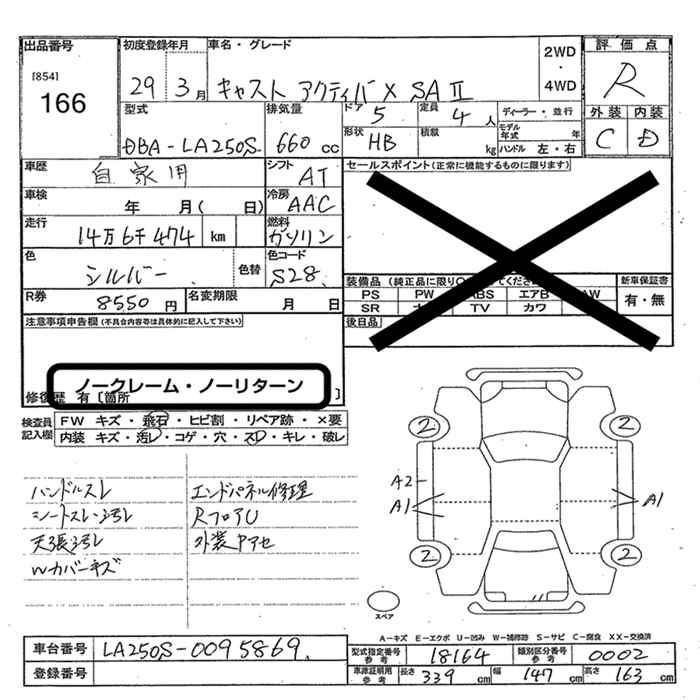 出品番号 初度登録年月 車名・グレード 2WD・4WD 評価点
[854] 166 29 3月 キャスト アクティバ X SAⅡ R
型式 排気量 ドア 5 定員 4人 ディーラー・並行 外装 内装
DBA-LA250S 660cc 形状 HB 積載 kg モデル年式 年 ハンドル 左・右 C D
車歴 自家用 シフト AT セールスポイント(正常に機能するものに限ります)
車検 年 月( 日) 冷房 AAC
走行 14万6千474 km 燃料 ガソリン
色 シルバー 色替 色コード S28 装備品(純正品に限り てくださ 新車保証書
PS PW ABS エアB AW 有・無
R券 8550円 名変期限 月 日 SR TV カワ
注意事項申告欄(不具合内容等は具体的に記入して下さい) 後日品
ノークレーム・ノーリターン
修復歴 有〔箇所 〕
検査員記入欄 FW キズ・飛石・ヒビ割・リペア跡・×要
内装 キズ・汚レ・コゲ・穴・スレ・キレ・破レ
2 2
ハンドルスレ エンドパネル修理 A2
シートスレ・ヨゴレ RフロアU A1 A1
天張ヨゴレ 外装Pアセ
Wカバーキズ 2 2
スペア
A-キズ E-エクボ U-凹み W-補修跡 S-サビ C-腐食 XX-交換済
車台番号 LA250S-0095869 型式指定番号 参考 18164 類別区分番号 参考 0002
登録番号 車庫証明用 参考 長さ 339cm 幅 147cm 高さ 163cm